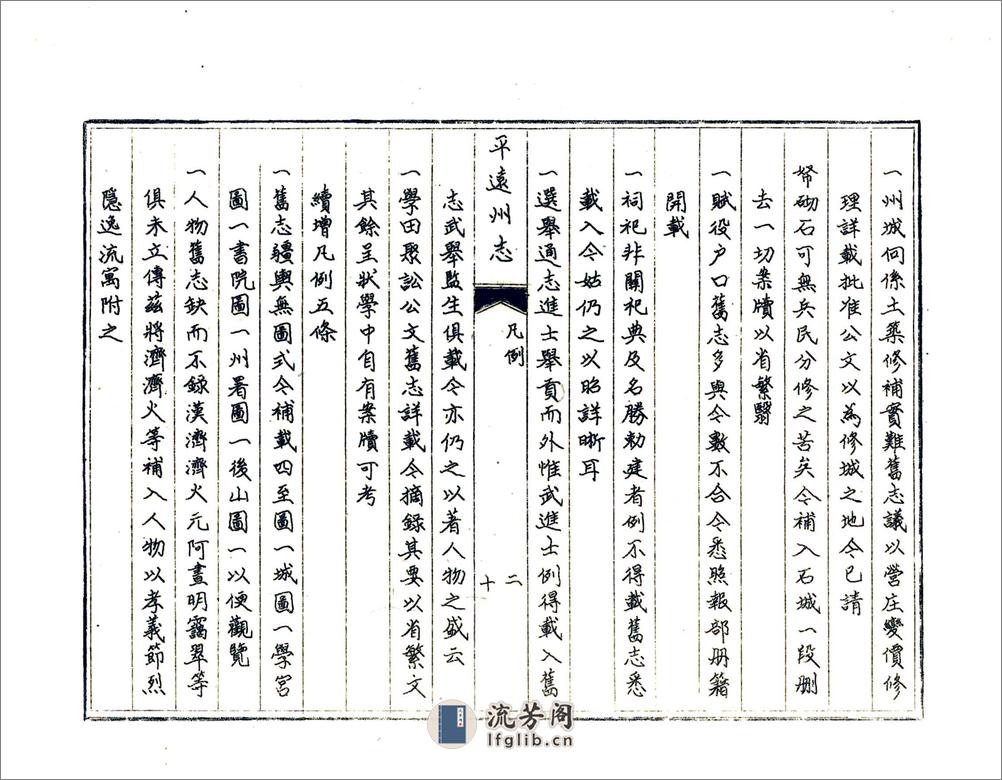 一州城向係土築修補實難舊志議以營庄變價修
理詳載批准公文以為修城之地今已請
帑砌石可無兵民分修之苦矣今補入石城一段刪
去一切案牘以省繁翳
一賦役户口舊志多與今數不合今悉照報部册籍
開載
一祠祀非關祀典及名勝勅建者例不得載舊志悉
載入今姑仍之以昭詳晰耳
一選舉通志進士舉貢而外惟武進士例得載入舊
平遠州志
凡例
二
十
志武舉監生俱載今亦仍之以著人物之盛云
一學田聚訟公文舊志詳載今摘錄其要以省繁文
其餘呈狀學中自有案牘可考
續增凡例五條
一舊志疆輿無圖式今補載四至圖一城圖一學宮
圖一書院圖一州署圖一後山圖一以便觀覽
一人物舊志缺而不録漢濟濟火元阿畫明靄翠等
俱未立傳茲將濟濟火等補入人物以孝義節烈
隱逸流寓附之
流芳阁
lfglib.cn